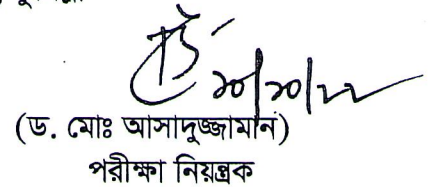 ২০/১০/২২
(ড. মোঃ আসাদুজ্জামান)
পরীক্ষা নিয়ন্ত্রক